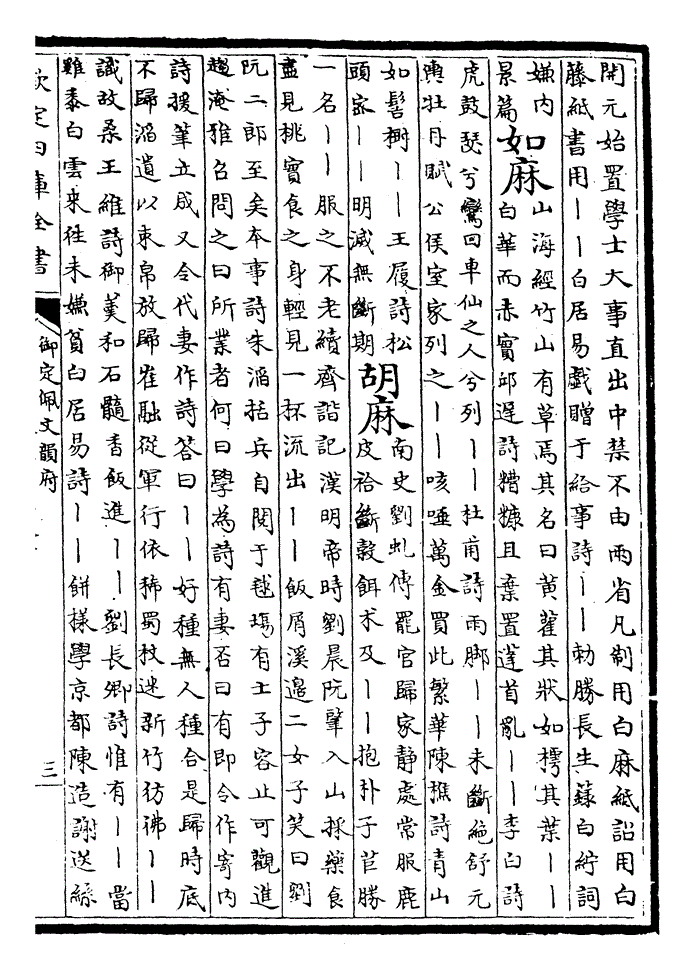 開元始置學士大事直出中禁不由兩省凡制用白麻紙詔用白
藤紙書用丨丨白居易戲贈于給事詩丨丨勅勝長生籙白紵詞
嫌内
景篇
如麻
山海經竹山有草焉其名曰黄雚其狀如樗其葉丨丨
白華而赤實邱遲詩糟糠且棄置蓬首亂丨丨李白詩
虎鼓瑟兮鸞回車仙之人兮列丨丨杜甫詩雨脚丨丨未斷絶舒元
輿牡丹賦公侯室家列之丨丨咳唾萬金買此繁華陳樵詩青山
如髻樹丨丨王履詩松
頭宻丨丨明滅無斷期
胡麻
南史劉虬傳罷官歸家静處常服鹿
皮袷斷穀餌术及丨丨抱朴子苣勝
一名丨丨服之不老續齊諧記漢明帝時劉晨阮肇入山採藥食
盡見桃實食之身輕見一杯流出丨丨飯屑溪邉二女子笑曰劉
阮二郎至矣本事詩朱滔括兵自閱于毬塲有士子容止可觀進
趨淹雅召問之曰所業者何曰學為詩有妻否曰有即令作寄内
詩援筆立成又令代妻作詩答曰丨丨好種無人種合是歸時底
不歸滔遺以束帛放歸崔融從軍行依稀蜀杖迷新竹彷彿丨丨
識故桑王維詩御羮和石髓香飯進丨丨劉長卿詩惟有丨丨當
雞黍白雲來往未嫌貧白居易詩丨丨餅様學京都陳造謝送絲
欽定四庫全書
御定佩文韻府
三